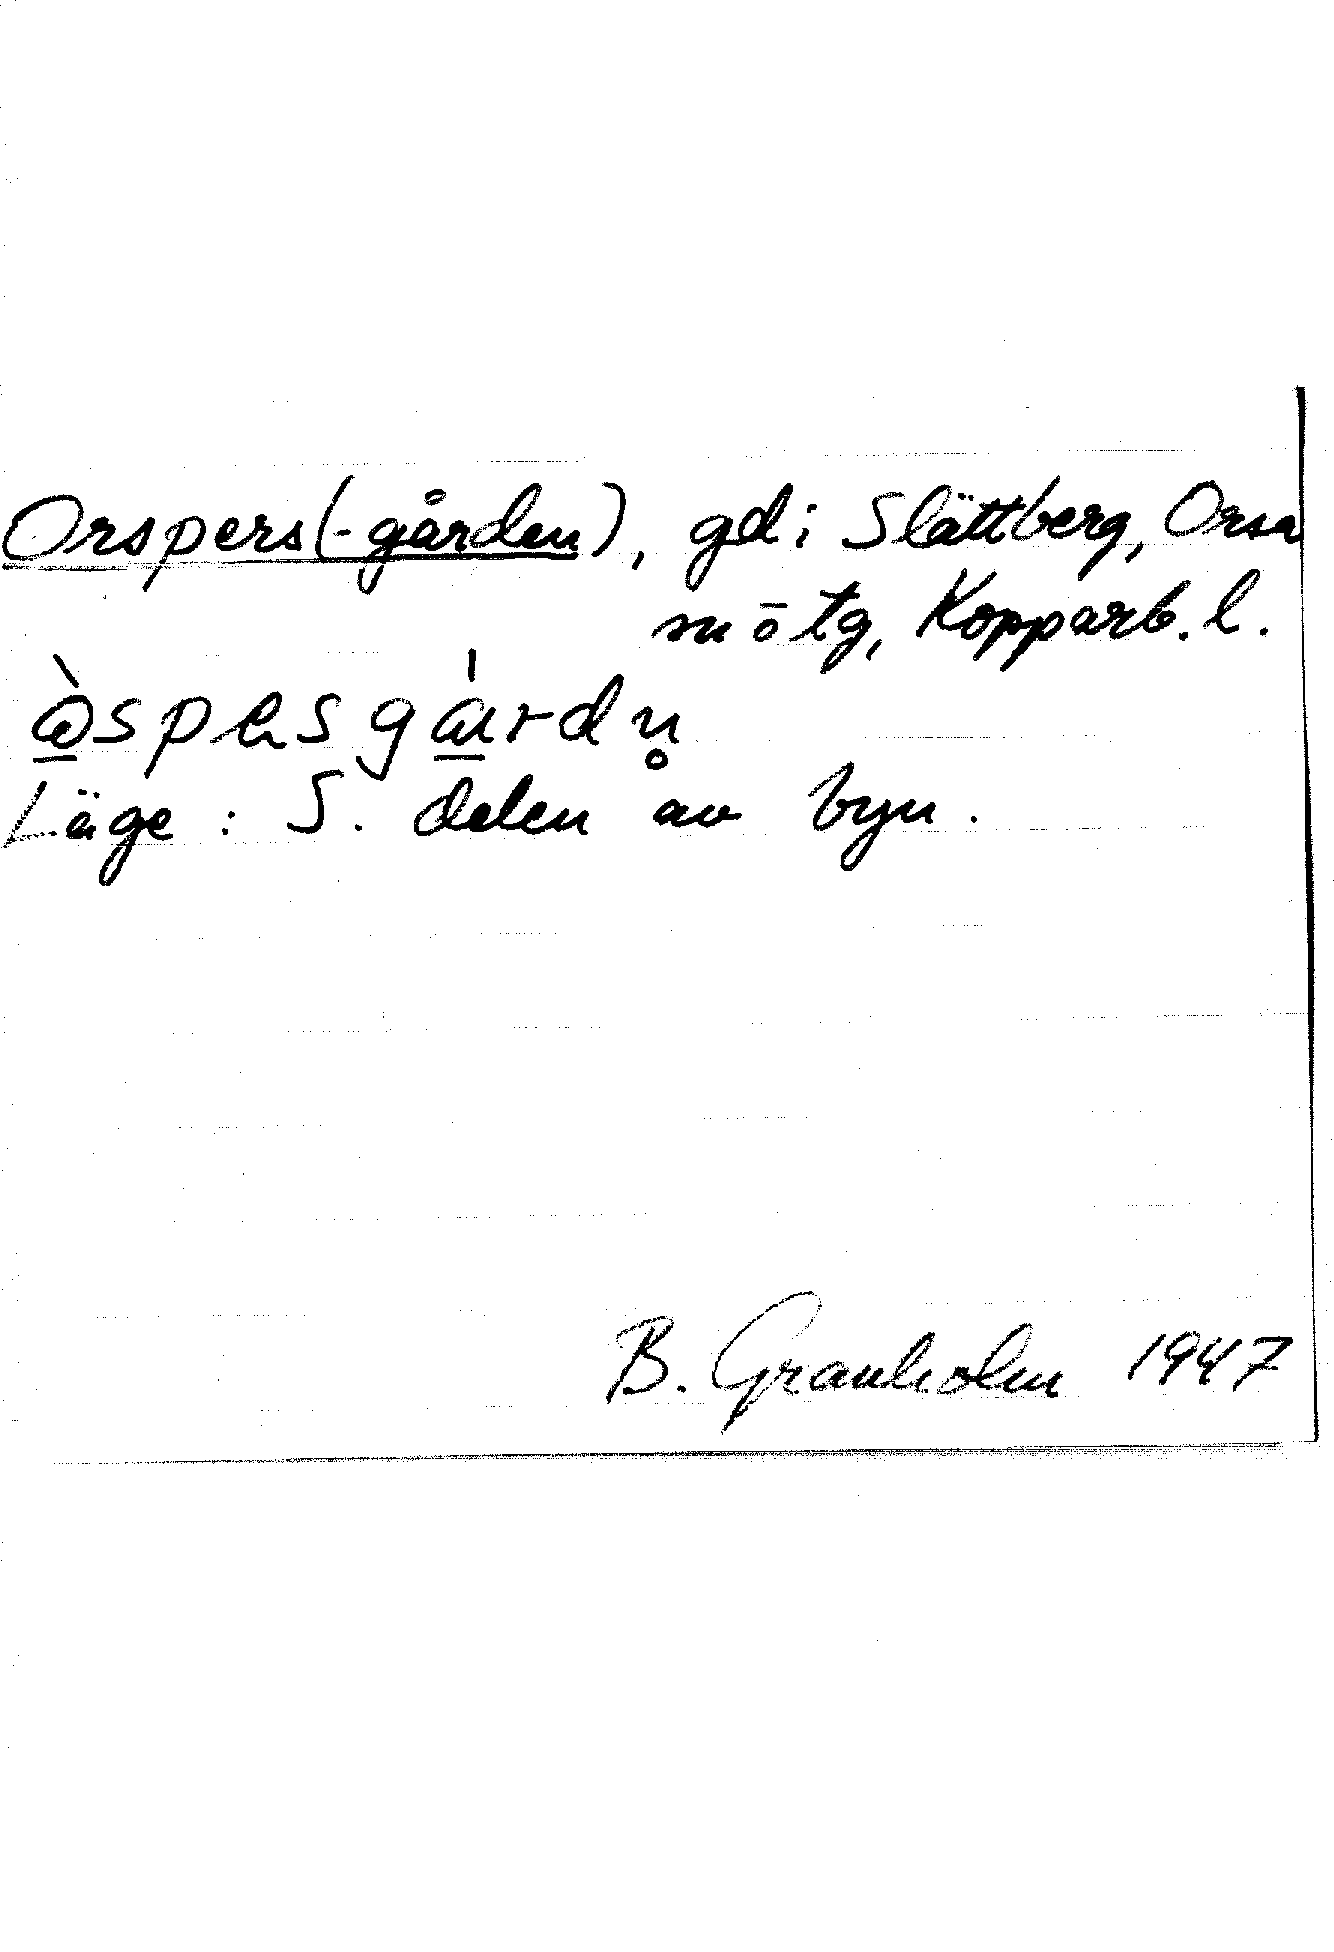 Orspers(-gården), gd i Slättberg, Orsa
mötg, Kopparb. l.
Läge : S. delen av byn.
B. Granholm 1947